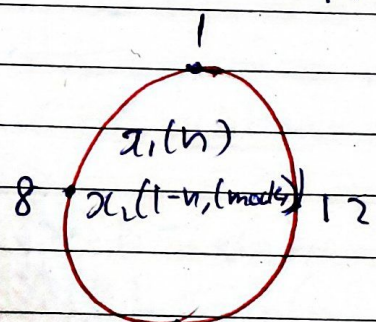 1
x₁(n)
8 x₂(1-n,(mod4)) 12